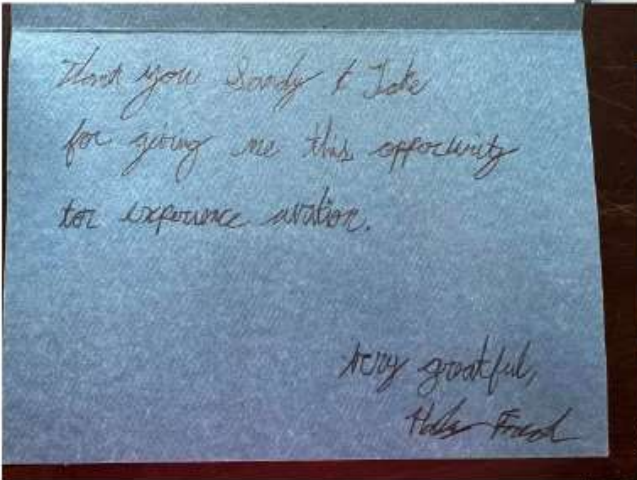 Thank you Sandy & Jake
for giving me this opportunity
to experience aviation.
Very grateful,